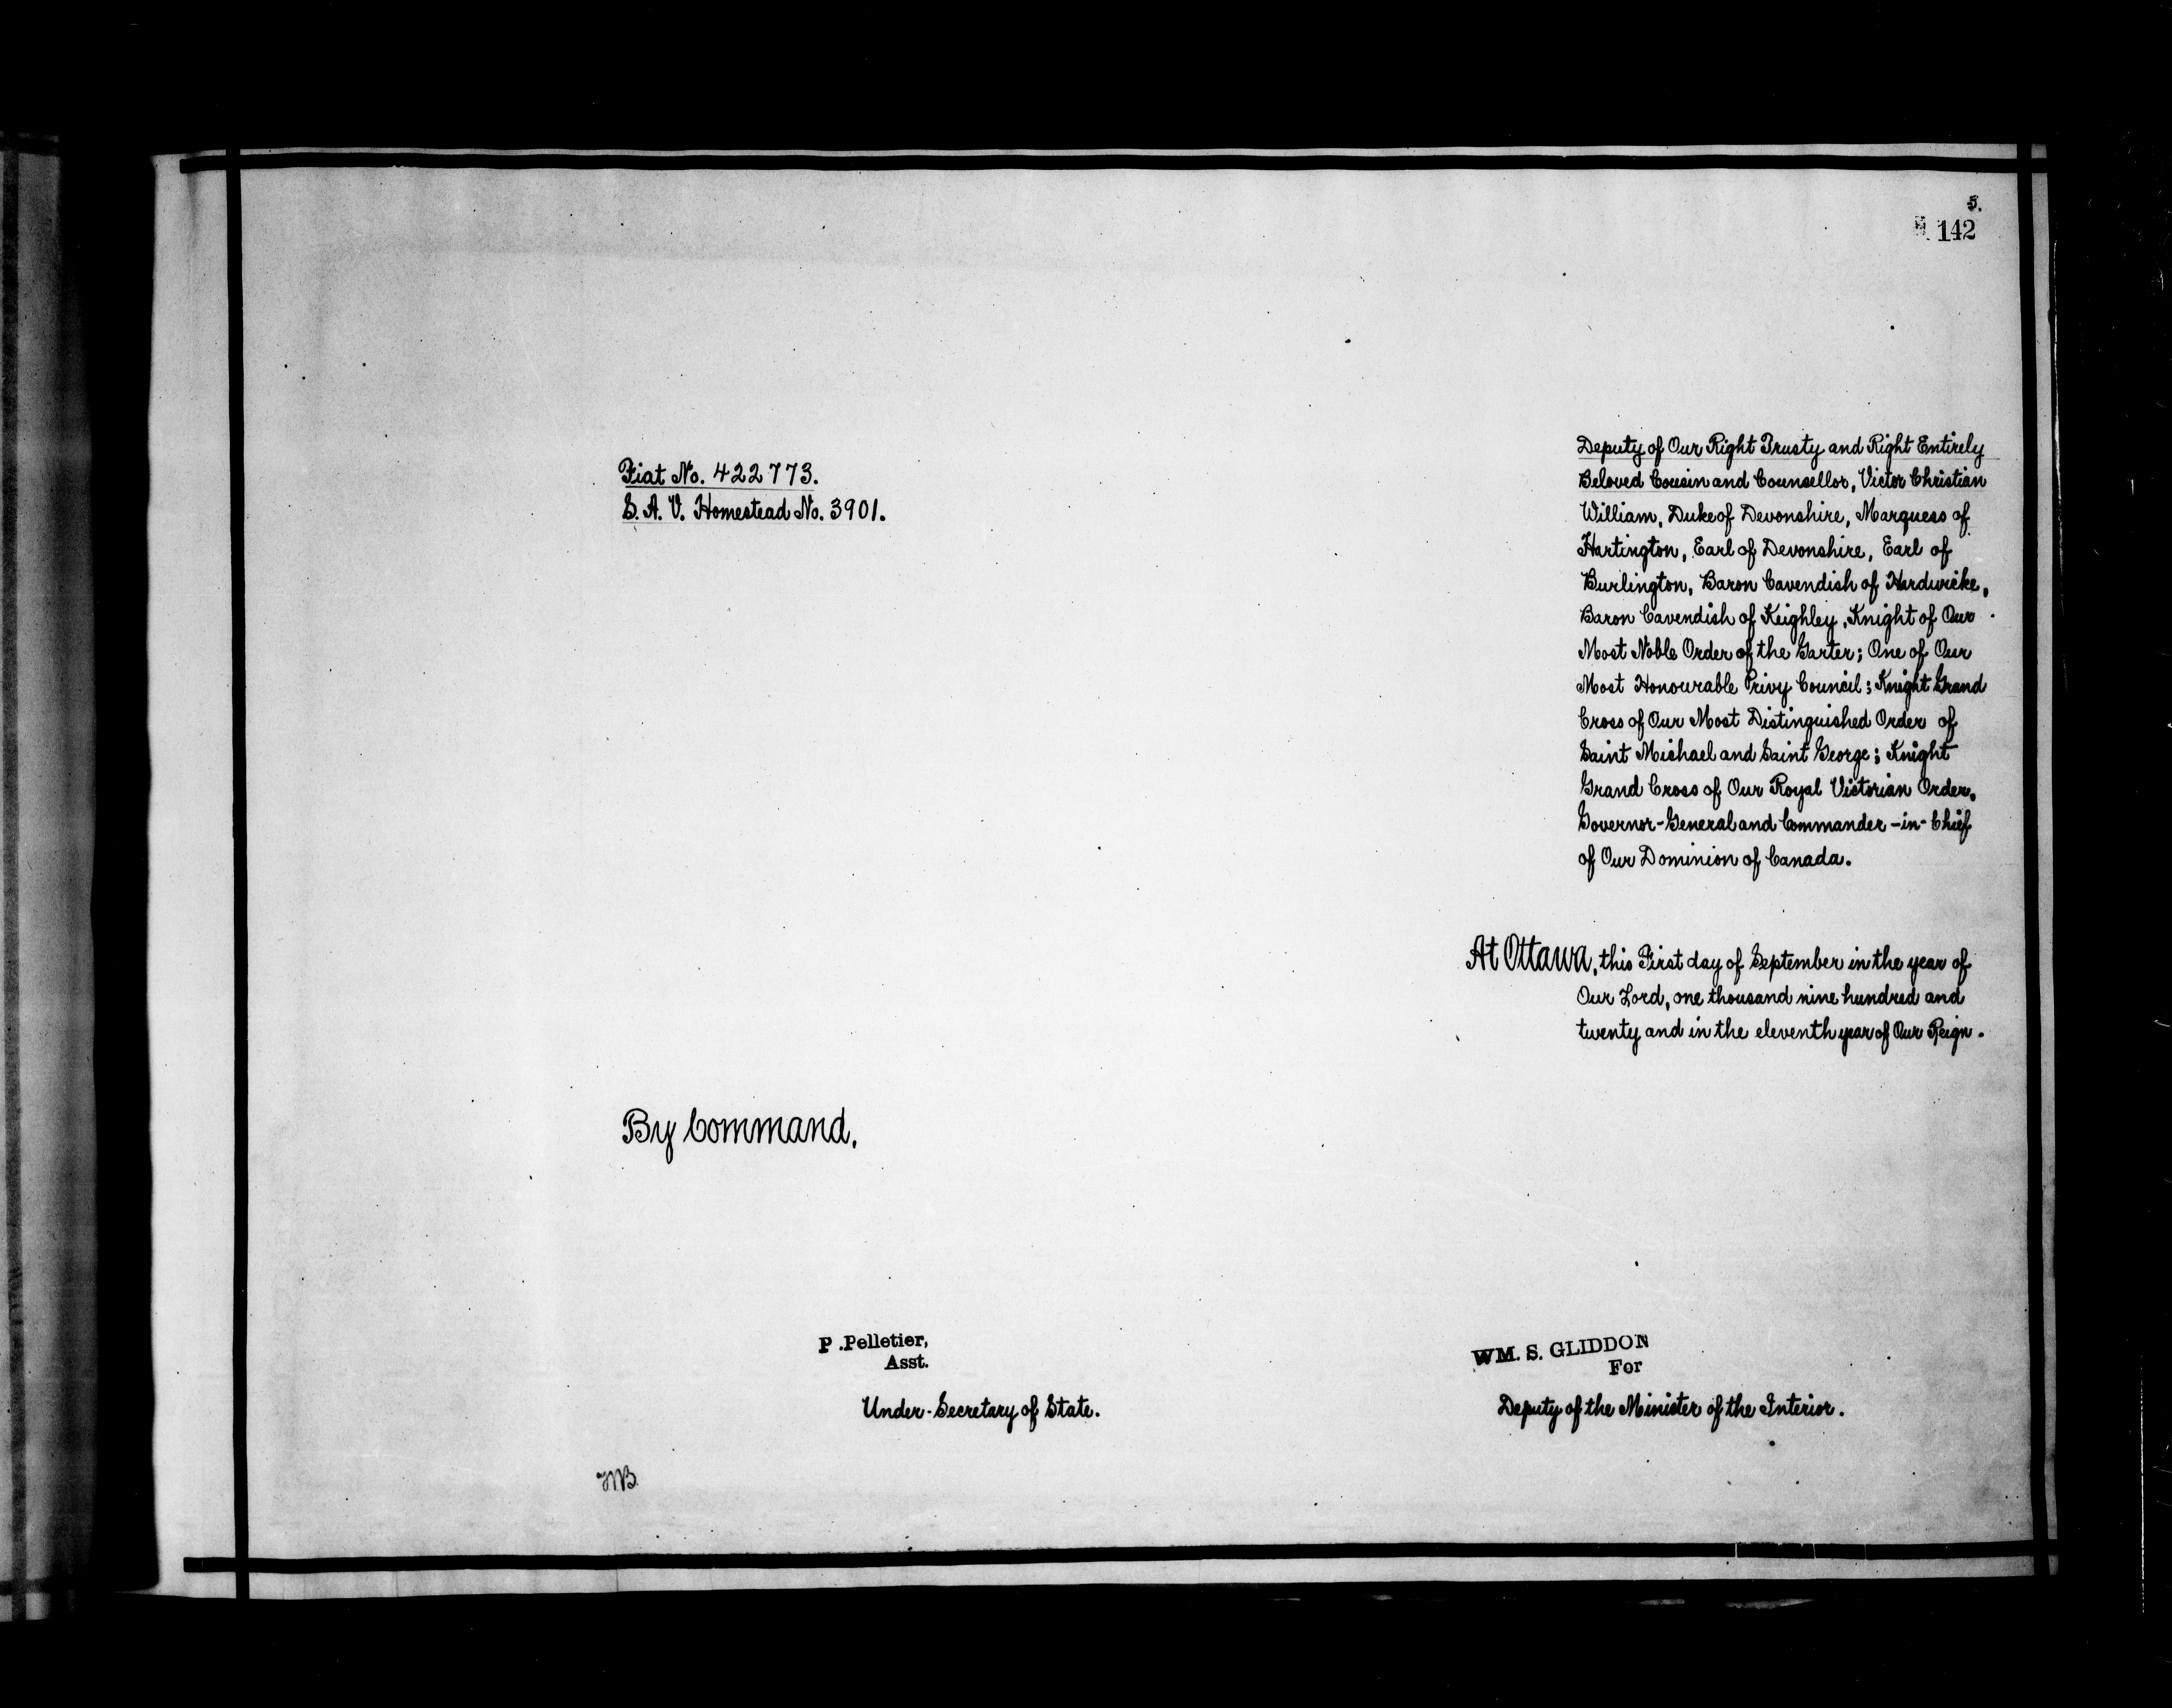 5.
142
Fiat No. 422773.
S. A. V. Homestead No. 3901.
Deputy of Our Right Trusty and Right Entirely
Beloved Cousin and Counsellor, Victor Christian
William, Duke of Devonshire, Marquess of
Hartington, Earl of Devonshire, Earl of
Burlington, Baron Cavendish of Hardwicke,
Baron Cavendish of Keighley, Knight of Our
Most Noble Order of the Garter; One of Our
Most Honourable Privy Council; Knight Grand
Cross of Our Most Distinguished Order of
Saint Michael and Saint George; Knight
Grand Cross of Our Royal Victorian Order,
Governor-General and Commander-in-Chief
of Our Dominion of Canada.
At Ottawa, this First day of September in the year of
Our Lord, one thousand nine hundred and
twenty and in the eleventh year of Our Reign.
By Command,
P. Pelletier,
Asst.
Under-Secretary of State.
WM. S. GLIDDON
For
Deputy of the Minister of the Interior.